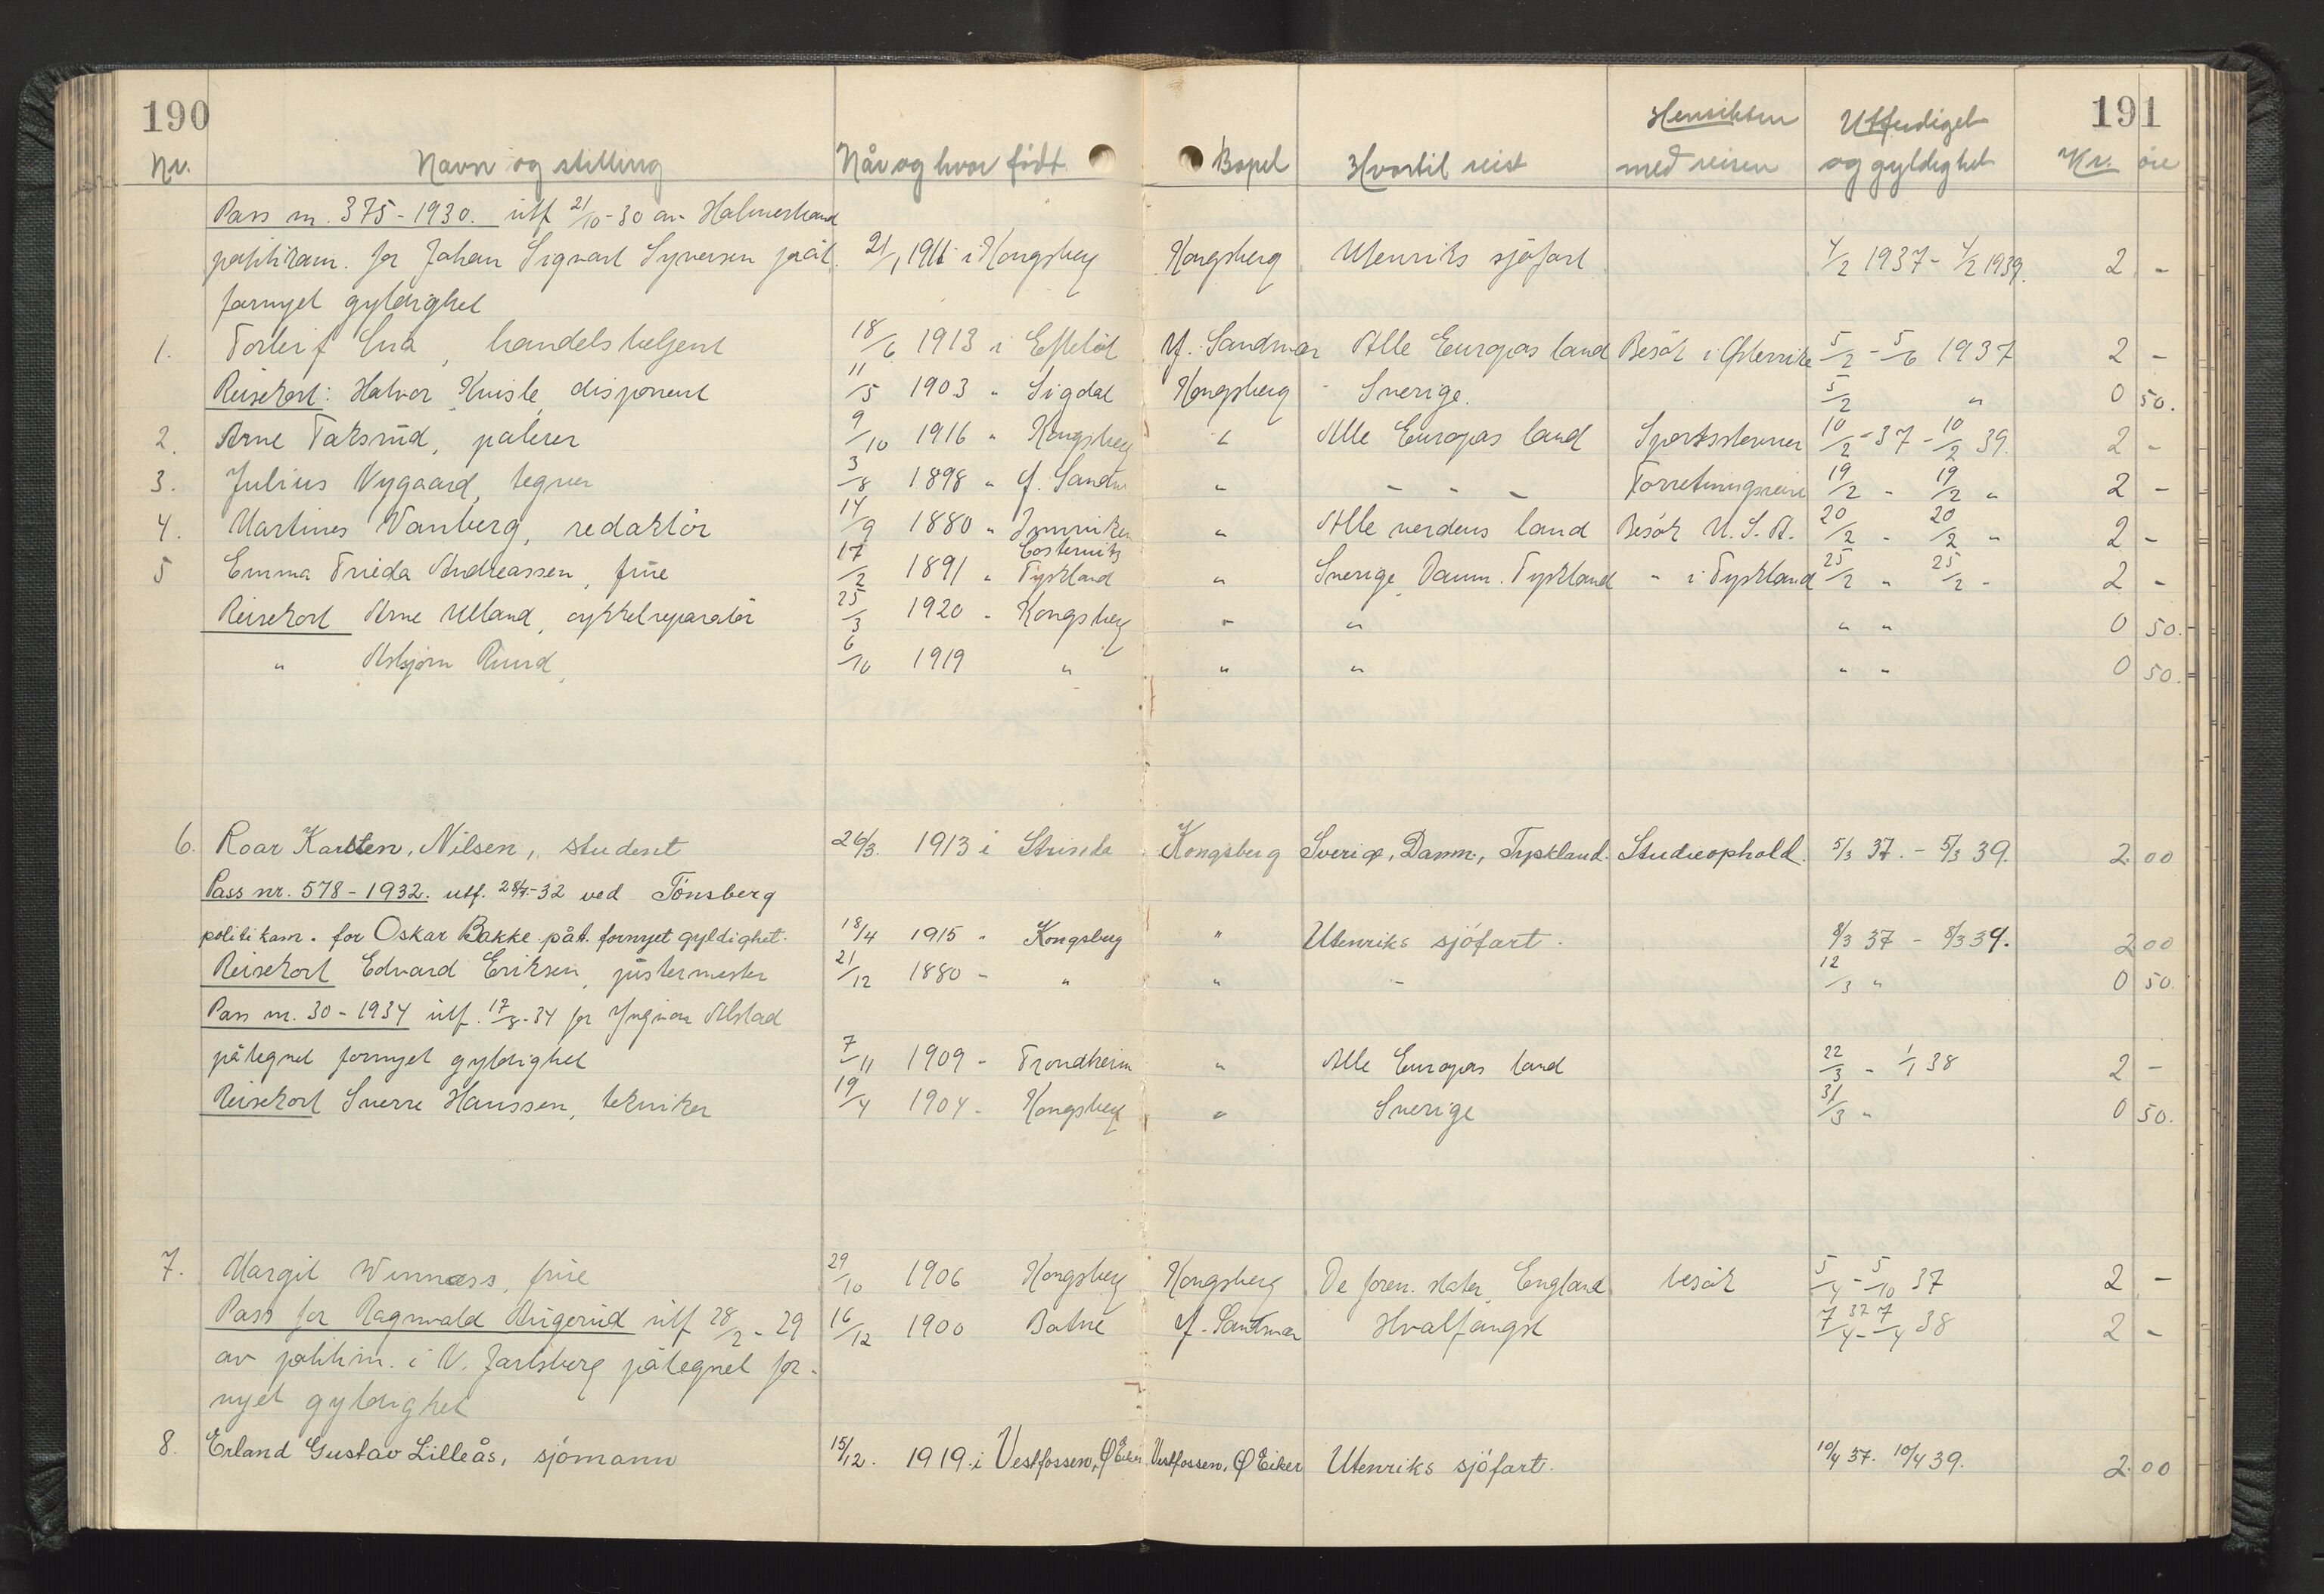 190
191
Nr. Navn og stilling Når og hvor født. Bopel Hvortil reist Hensikten med reisen Utferdiget og gyldighet Kr. øre
Pass nr. 375 - 1930. utf 21/10-30 av Holmestrand
politikam. for Johan Sigvart Syversen påt. 21/1 1911 i Kongsberg Kongsberg Utenriks sjøfart 4/2 1937 - 4/2 1939. 2 -
fornyet gyldighet
1. Torleif handelsbetjent 18/6 1913 i Efteløt Y. Sandsvær Alle Europas land Besøk i Østerrike 5/2 - 5/6 1937 2 -
Reisekort: Halvor Kvisle, disponent 11/5 1903 " Sigdal Kongsberg Sverige. 5/2 " 0 50.
2. Arne Taksrud, pølser 9/10 1916 " Kongsberg " Alle Europas land Sportsstevner 10/2 - 37 - 10/2 39. 2 -
3. Julius Nygaard, tegner 3/8 1898 " Y. Sandsv " - - - Forretningsreise 19/2 - 19/2 " 2 -
4. Martines Vanberg, redaktör 14/9 1880 " " Alle verdens land Besøk U.S.A. 20/2 - 20/2 " 2 -
5 Emma Frieda Andreassen, frue 17/2 1891 " Costernitz Tyskland " Sverige, Danm. Tyskland " i Tyskland 25/2 " 25/2 - 2 -
Reisekort Arne Ulland, cykkelreparatör 25/3 1920 - Kongsberg " " " " 0 50.
" Asbjørn Ruud, 6/10 1919 " " " " " 0 50.
6. Roar Karsten, Nilsen, student 26/3. 1913 i Strinda Kongsberg Sverige, Danm., Tyskland. Studieophold. 5/3 37. - 5/3 39. 2.00
Pass nr. 578 - 1932. utf. 28/7-32 ved Tönsberg
politikam. for Oskar Bakke påt. fornyet gyldighet. 18/4 1915 " Kongsberg " Utenriks sjöfart. 8/3 37 - 8/3 39. 2 00
Reisekort Edvard Eriksen, justermester 21/12 1880 - " " - 12/3 " 0 50.
Pass nr. 30 - 1934 utf. 17/8-34 for Yngvar Alstad
påtegnet fornyet gyldighet 7/11 1909 - Trondheim " Alle Europas land 22/3 - 1/1 38 2 -
Reisekort Sverre Hanssen, tekniker 19/4 1904 - Kongsberg " Sverige 31/3 " 0 50.
7. Margit Winnæss, frue 29/10 1906 Kongsberg Kongsberg De foren. stater, England besøk 5/4 - 5/10 37 2 -
Pass for Ragnvald Augerud utf 28/2 - 29 16/12 1900 Botne Y. Sandsvær Hvalfangst 7/4 37 - 7/4 38 2 -
av politim. i N. Jarlsberg påtegnet for-
nyet gyldighet
8. Erland Gustav Lilleås, sjömann 15/12. 1919. i Vestfossen, Ø Eiker Vestfossen, Ø Eiker Utenriks sjöfart. 10/4 37. 10/4 39. 2.00